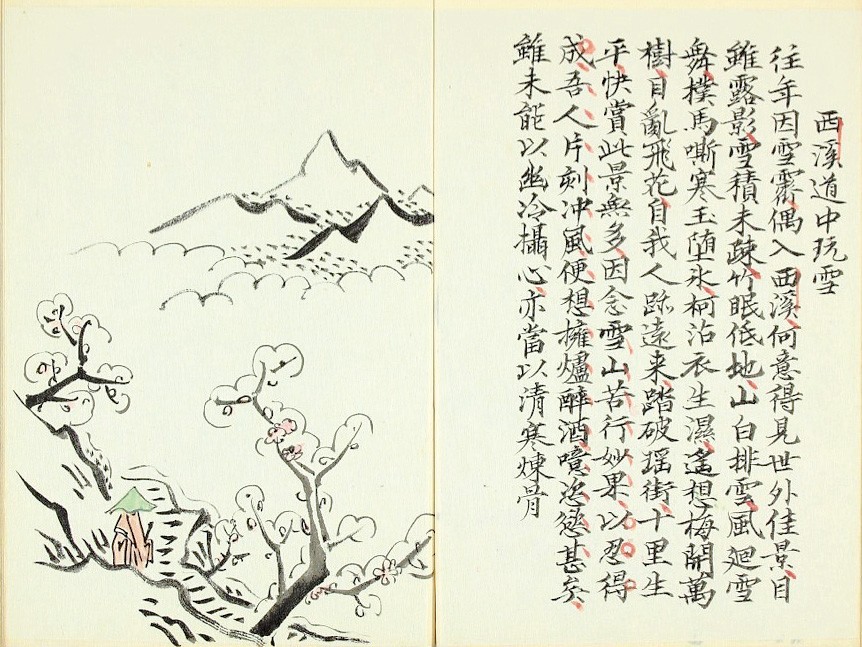 西溪道中玩雪
往年因雪霽偶入西溪何意得見世外佳景日
雖露影雪積未疎竹眠低地山白排雲風廻雪
舞撲馬嘶寒玉堕氷柯沾衣生濕遥想梅開萬
樹目亂飛花自我人跡遠来踏破瑶街十里生
平快賞此景無多因念雪山苦行妙果以忍得
成吾人片刻沖風便想擁爐醉酒噫恣慾甚矣
雖未能以幽冷攝心亦當以清寒煉骨